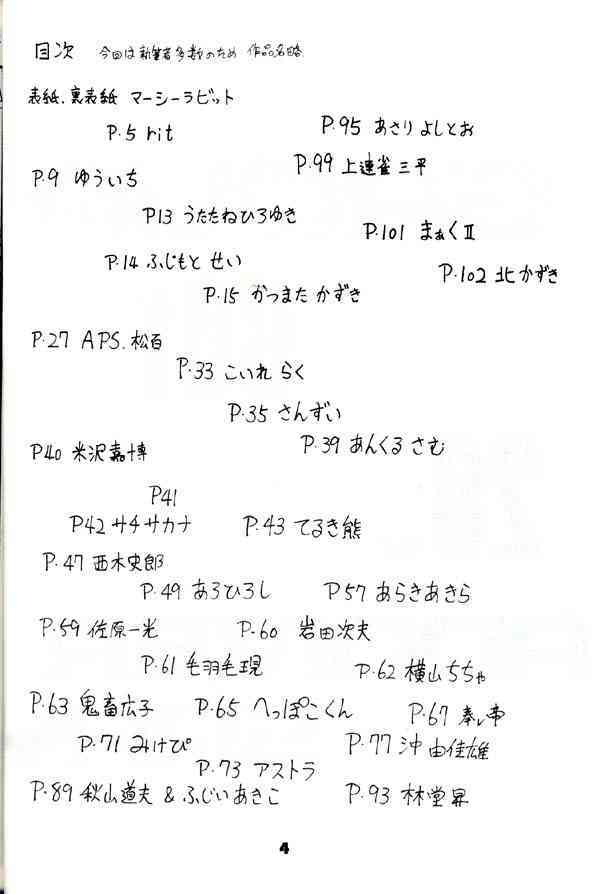 目次　今回は執筆者多数のため 作品名略
表紙.裏表紙 マーシーラビット
P.5 hit
P.95 あさり よしとお
P.99 上連雀 三平
P.9 ゆういち
P13 うたたねひろゆき
P.101 まぁくⅡ
P.14 ふじもと せい
P.102 北かずき
P.15 かつまた かずき
P.27 APS.松百
P.33 こいれ らく
P.35 さんずい
P.39 あんくる さむ
P40 米沢嘉博
P41
P42 サチサカナ
P.43 てるき熊
P.47 西木史郎
P.49 あろひろし
P57 あらきあきら
P.59 佐原一光
P.60 岩田次夫
P.61 毛羽毛現
P.62 横山ちちゃ
P.63 鬼畜広子
P.65 へっぽこくん
P.67
P.71 みけぴ
P.77 沖 由佳雄
P.73 アストラ
P.89 秋山道夫 & ふじいあきこ
P.93 林堂昇
4